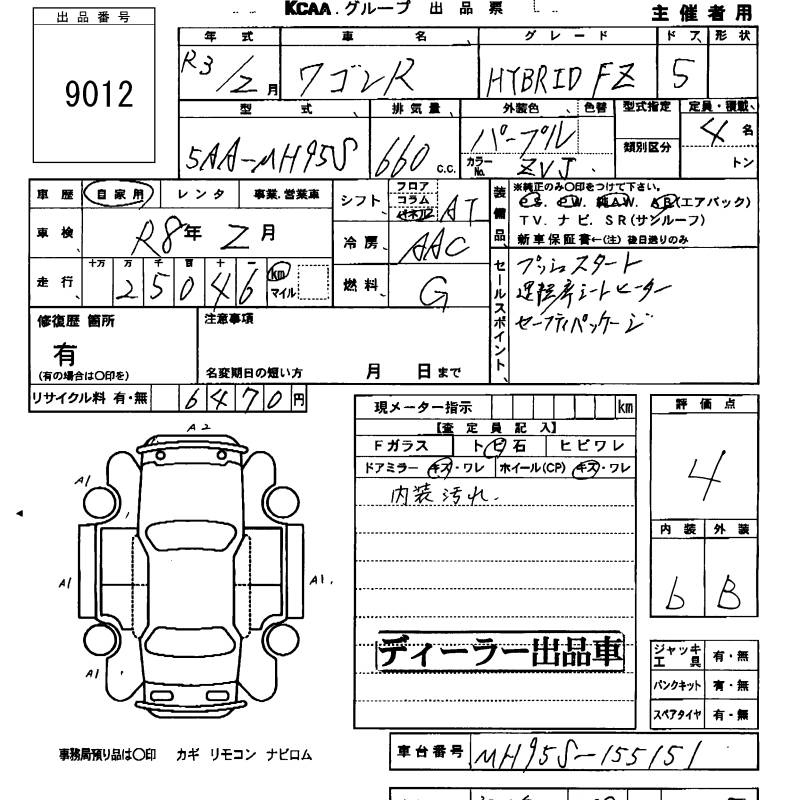 KCAA.グループ 出品票
主催者用
出品番号
9012
年式 車名 グレード ドア 形状
R3/2月 ワゴンR HYBRID FZ 5
型式 排気量 外装色 色替 型式指定 定員・積載
5AA-MH95S 660 c.c. パープル 類別区分 4名
カラーNo. ZVJ トン
車歴 自家用 レンタ 事業.営業車
車検 R8年 2月
走行 十万 万 千 百 十 一
25046 km マイル
シフト フロア コラム パネル AT
冷房 AAC
燃料 G
装備品 ※純正のみ○印をつけて下さい。
P.S. P.W. 純A.W. A.B(エアバック)
T V. ナ ビ. S R (サンルーフ)
新車保証書←(注) 後日送りのみ
セールスポイント
プッシュスタート
運転席シートヒーター
セーフティパッケージ
修復歴 箇所
有
(有の場合は○印を)
注意事項
名変期日の短い方 月 日まで
リサイクル料 有・無 6470円
現メーター指示 km
【査定員記入】
Fガラス トビ石 ヒビワレ
ドアミラー キズ・ワレ ホイール(CP) キズ・ワレ
内装汚れ.
ディーラー出品車
評価点
4
内装 外装
b B
ジャッキ工具 有・無
パンクキット 有・無
スペアタイヤ 有・無
A2
A1
A1 A1.
A1
事務局預り品は○印 カギ リモコン ナビロム
車台番号 MH95S-155151